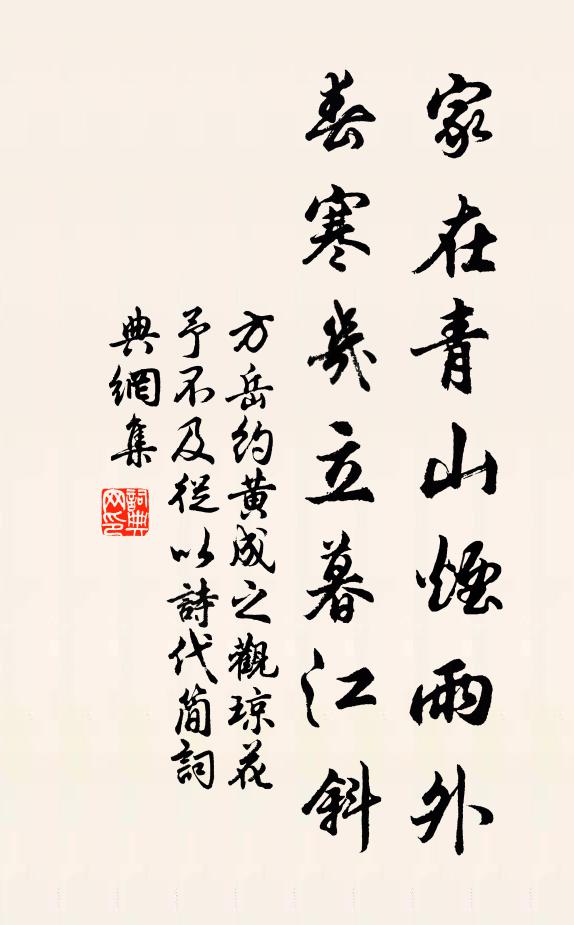 家在青山煙雨外
春寒幾立暮江斜
方岳約黃成之觀琼花
予不及從以詩代簡詞
典網集
詞典
网印